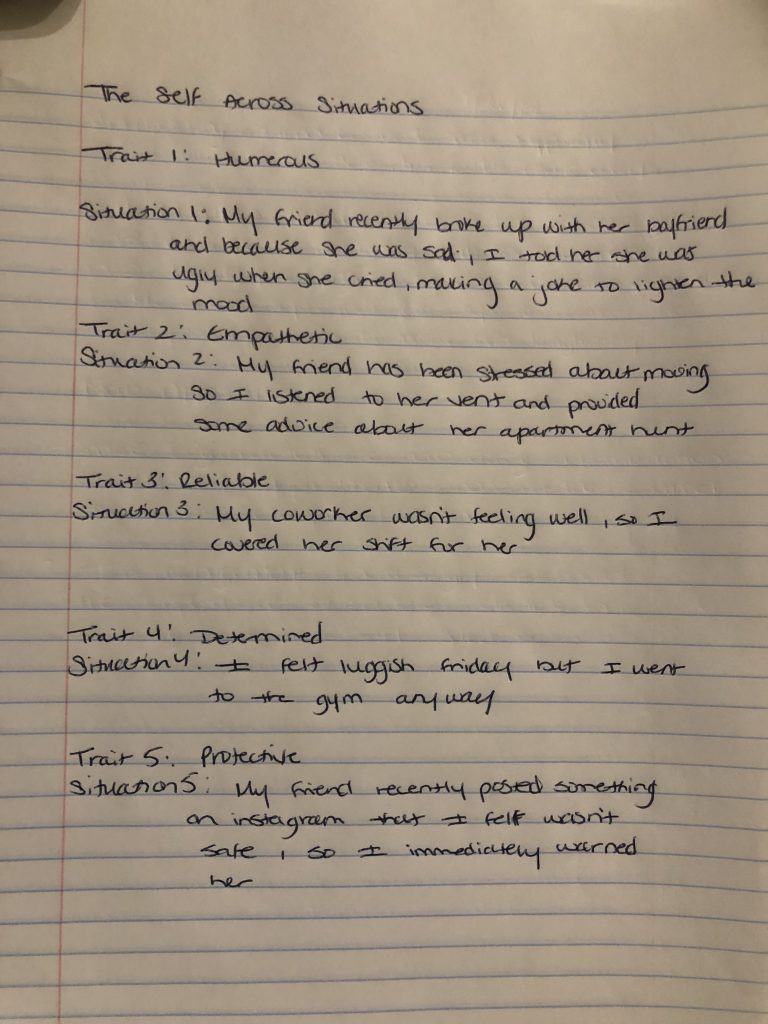 The Self Across Situations
Trait 1: Humerous
Situation 1: My friend recently broke up with her boyfriend
and because she was sad, I told her she was
ugly when she cried, making a joke to lighten the
mood
Trait 2: Empathetic
Situation 2: My friend has been stressed about moving
so I listened to her vent and provided
some advice about her apartment hunt
Trait 3: Reliable
Situation 3: My coworker wasn't feeling well, so I
covered her shift for her
Trait 4: Determined
Situation 4: I felt luggish friday but I went
to the gym anyway
Trait 5: Protective
Situation 5: My friend recently posted something
on instagram that I felt wasn't
safe, so I immediately warned
her